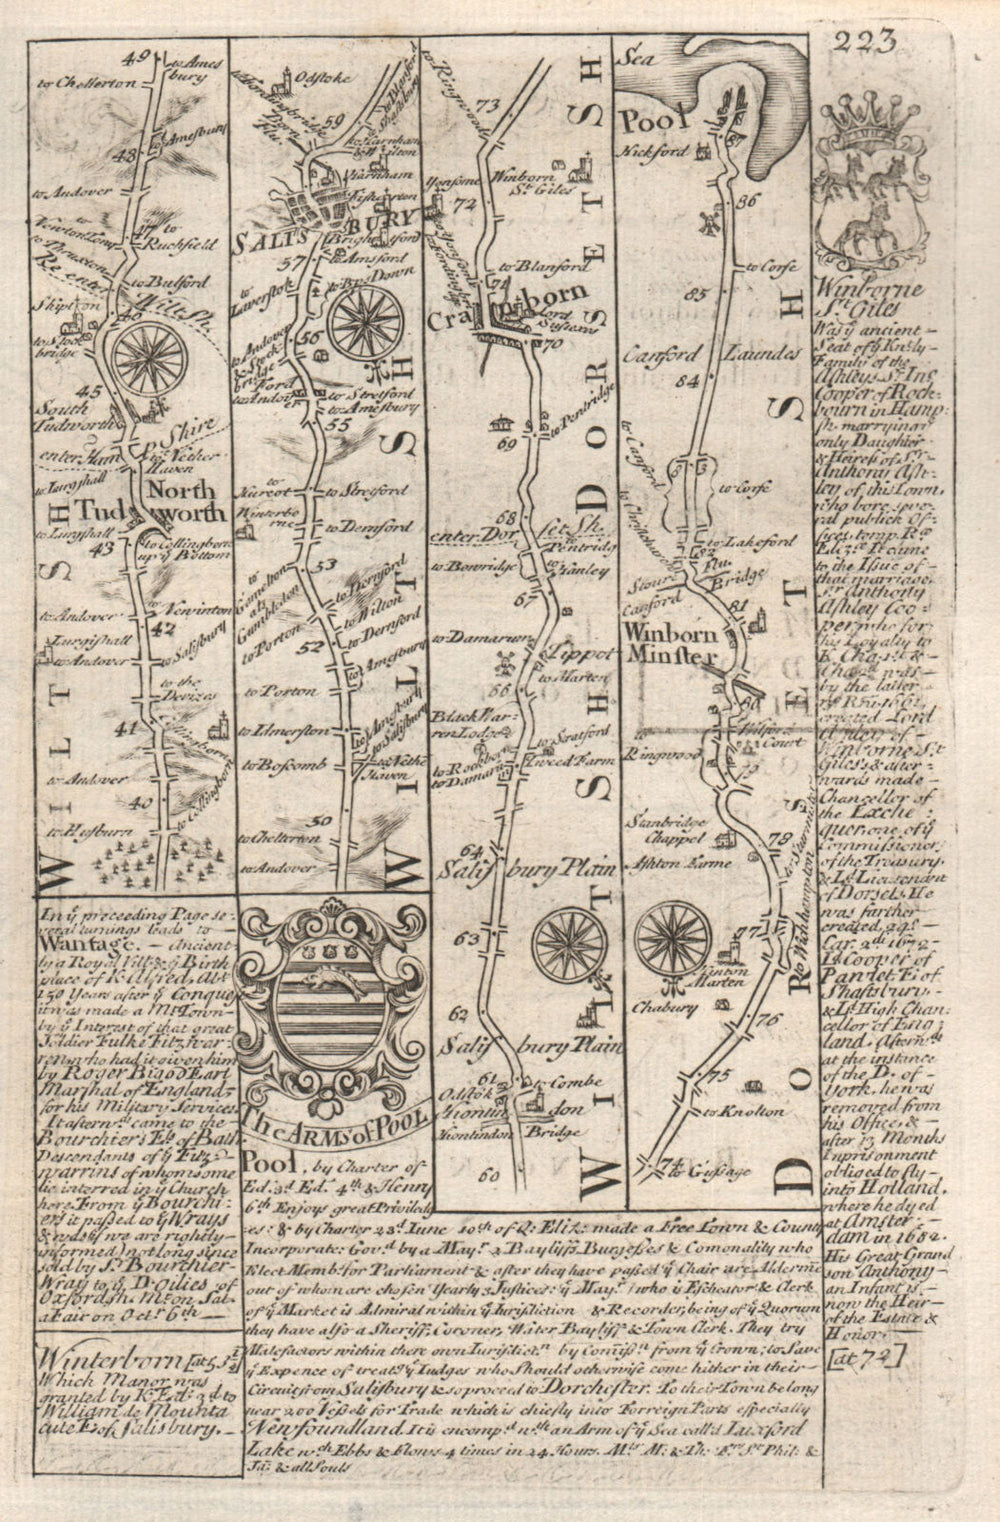 223
49
to Ames
bury
to Chelterton
to Amesbury
48
to Andover
47
to
Ruchfield
to
Newton Tony
to Thruxton
Re enter
Wiltsh.
to Bulford
Shipton
46
to Stock
bridge
45
South
Tudworth
Shire
enter Ham
to Nether
Haven
to Lurgshall
North
Tud worth
to Lurgshall
43
to Collingborn
up ỹ Bottom
to Andover
to Newinton
42
Lurgishall
to Andover
to Salisbury
to the
Devizes
41
to Andover
40
to Collingborn
to Husburn
WILTSH
Odstoke
to Fordingbridge
59
to Harnham
& Wilton
Harnham
Fisherton
SALIS BURY
57
to Amsford
to Laverstok
56
to Andover
& Stock
bridge
Ford
to Andover
to Stretford
to Amesbury
55
to
Nurcot
to Stretford
Winterbo
rne
to Dernford
53
to Dernford
to Gomelton
als
Gumbleton
to Wilton
to Porton
to Dernford
52
to Amesbury
to Porton
to Amesbury
to Idmerston
to Salisbury
to Boscomb
to Nethr
Haven
50
to Chelterton
to Andover
WILTSH
to Ringwood
73
Winborn
St. Giles
72
71
to Blanford
Cranborn
Lord
Salisbury
70
69
to Pentridge
68
enter Dor set Sh.
to
Pentridg
to Bowridge
to
Hanley
67
to Damarum
Tippot
to Marten
66
Black War:
ren Lodge
to Stratford
to Rockborn
to Damarum
Tweed Farm
64
Salis bury Plain
63
62
Salis bury Plain
61
to Combe
Odstok
Hontin don
Hontindon Bridge
60
WILTSH
DORSETSH
Sea
Pool
Hickford
86
to Corfe
85
Canford Laundes
84
to Canford
to Corfe
to Christchurch
to Lakeford
82
Stoure Flu
Bridge
Canford
81
Winborn
Minster
80
to
Ringwood
Wilford
Court
79
Stanbridge
Chappel
78
Ashton Farme
to Sturminster
77
to Wichhampton
Hinton
Marten
Chabury
76
75
to Knolton
74
to Gussage
DORSETSH
In ỹ preceeding Page se:
veral turnings leads to
Wantage. — Ancient-
ly a Royal Vill: & ỹ Birth
place of K. Alfred. Abt.
150 Years after ỹ Conquest
it was made a Mt. Town—
by ỹ Interest of that great
Soldier Fulke Fitzwar-
ren, who had it given him
by Roger Bigod Earl
Marshal of England;
for his Military Services.
It afterwds. came to the—
Bourchiers Es. of Bath
Descendants of ỹ Fitz—
warrins of whom some
lie interred in ỹ Church
here. From ỹ Bourchi:
ers it passed to ỹ Wrays
& wds (if we are rightly—
informed) not long since
sold by Sr. Bourchier—
Wray to ỹ Doilies of
Oxfordsh. Mt. on Sat.
a Fair on Octr. 6th —
Winterborn [at 51½]
Which Manor was
granted by K. Ed: 3d to
William de Mounta
cute E. of Salisbury. —
The ARMS of POOL
Pool, by Charter of
Ed. 3d Ed. 4th & Henry
6th Enjoys great Priviledg
es: & by Charter 23d June 10th of Q: Eliz: made a Free Town & County
Incorporate: Govd. by a Mayr. 2 Bayliffs, Burgesses & Comonality who
Elect Membs. for Parliament & after they have passed ỹ Chair are Alderme
out of whom are chosen Yearly 3 Justices: ỹ Mayr. (who is Escheator & Clerk
of ỹ Market is Admiral within ỹ Jurisdiction & Recorder, being of ỹ Quorum
they have also a Sheriff, Coroner, Water Bayliff & Town Clerk. They try
Malefactors within there own Jurisdictn. by Comissn. from ỹ Crown; to Save
ỹ Expence of treatg. ỹ Judges who Should otherwise come hither in their—
Circuit from Salisbury & so proceed to Dorchester. To their Town belong
near 200 Vessels for Trade which is chiefly into Forreign Parts especially
Newfoundland. It is encompd. wth. an Arm of ỹ Sea call'd Luxford
Lake wth. Ebbs & Flows 4 times in 24 Hours. Mts. M: & Th: Frs. St. Phil: &
Ja: & all Souls
Winborne
St. Giles
Was ỹ ancient —
Seat of ỹ Kntly—
Family of the
Ashleys, Sr. Jno
Cooper of Rock-
bourn in Hamp:
sh. marrying ỹ
only Daughter
& Heiress of Sr.
Anthony Ash-
ley of this Town,
who bore seve-
ral publick Of-
fices temp. Ra
Eliz: it came
to the Issue of
that marriage.
Sr. Anthony
Ashley Coo-
per who for
his Loyalty to
K. Chas. 1st &—
Cha. 2d was—
by the latter
created Lord
Ashley of—
Winborne St.
Giles & after-
wards made —
Chancellor of
the Exche:
quer, one of ỹ
Commissioners
of the Treasury.
& Ld. Lieutenant
of Dorset. He
was farther
created 24o
Car. 2di 1672-
Ld Cooper of
Pawlet E. of
Shaftsbury.—
& Ld. High Chan-
cellor of Eng:
land. Afterwds.
at the instance
of the D. of—
York, he was
removed from
his Office, &—
after 13 Months
Inprisonment
oblidged to fly—
into Holland,
where he dyed
at Amster—
dam in 1682.
His Great Grand
son Anthony—
an Infant is—
now the Heir—
of the Estate &
Honor. —
[at 72]